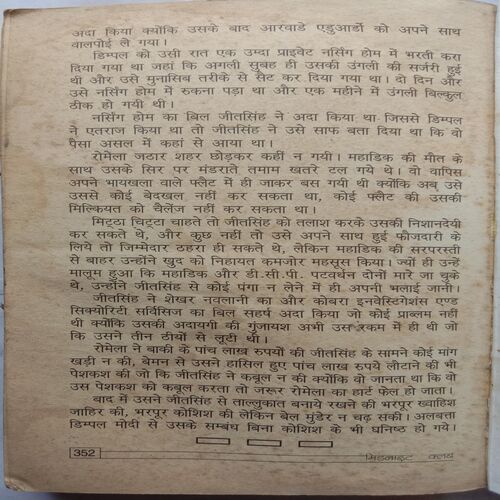 अदा किया क्योंकि उसके बाद आरवाडे एडुआर्डो को अपने साथ
वालपोई ले गया।
डिम्पल को उसी रात एक उम्दा प्राइवेट नर्सिंग होम में भरती करा
दिया गया था जहां कि अगली सुबह ही उसकी उंगली की सर्जरी हुई
थी और उसे मुनासिब तरीके से सैट कर दिया गया था। दो दिन और
उसे नर्सिंग होम में रुकना पड़ा था और एक महीने में उंगली बिल्कुल
ठीक हो गयी थी।
नर्सिंग होम का बिल जीतसिंह ने अदा किया था जिससे डिम्पल
ने एतराज किया था तो जीतसिंह ने उसे साफ बता दिया था कि वो
पैसा असल में कहां से आया था।
रोमेला जठार शहर छोड़कर कहीं न गयी। महाडिक की मौत के
साथ उसके सिर पर मंडराते तमाम खतरे टल गये थे। वो वापिस
अपने भायखला वाले फ्लैट में ही जाकर बस गयी थी क्योंकि अब उसे
उससे कोई बेदखल नहीं कर सकता था, कोई फ्लैट की उसकी
मिल्कियत को चैलेंज नहीं कर सकता था।
मिट्ठा चिट्टा चाहते तो जीतसिंह को तलाश करके उसकी निशानदेयी
कर सकते थे, और कुछ नहीं तो उसे अपने साथ हुई फौजदारी के
लिये तो जिम्मेदार ठहरा ही सकते थे, लेकिन महाडिक की सरपरस्ती
से बाहर उन्होंने खुद को निहायत कमजोर महसूस किया। ज्यों ही उन्हें
मालूम हुआ कि महाडिक और डी.सी.पी. पटवर्धन दोनों मारे जा चुके
थे, उन्होंने जीतसिंह से कोई पंगा न लेने में ही अपनी भलाई जानी।
जीतसिंह ने शेखर नवलानी का और कोबरा इनवेस्टिगेशंस एण्ड
सिक्योरिटी सर्विसिज का बिल सहर्ष अदा किया जो कोई प्राब्लम नहीं
थी क्योंकि उसकी अदायगी की गुंजायश अभी उस रकम में ही थी जो
कि उसने तीन ठीयों से लूटी थी।
रोमेला ने बाकी के पांच लाख रुपयों की जीतसिंह के सामने कोई मांग
खड़ी न की, बेमन से उसने हासिल हुए पांच लाख रुपये लौटाने की भी
पेशकश की जो कि जीतसिंह ने कबूल न की क्योंकि वो जानता था कि वो
उस पेशकश को कबूल करता तो जरूर रोमेला का हार्ट फेल हो जाता।
बाद में उसने जीतसिंह से ताल्लुकात बनाये रखने की भरपूर ख्वाहिश
जाहिर की, भरपूर कोशिश की लेकिन बेल मुंडेर न चढ़ सकी। अलबत्ता
डिम्पल मोदी से उसके सम्बंध बिना कोशिश के भी घनिष्ठ हो गये।
352
मिडनाइट क्लब